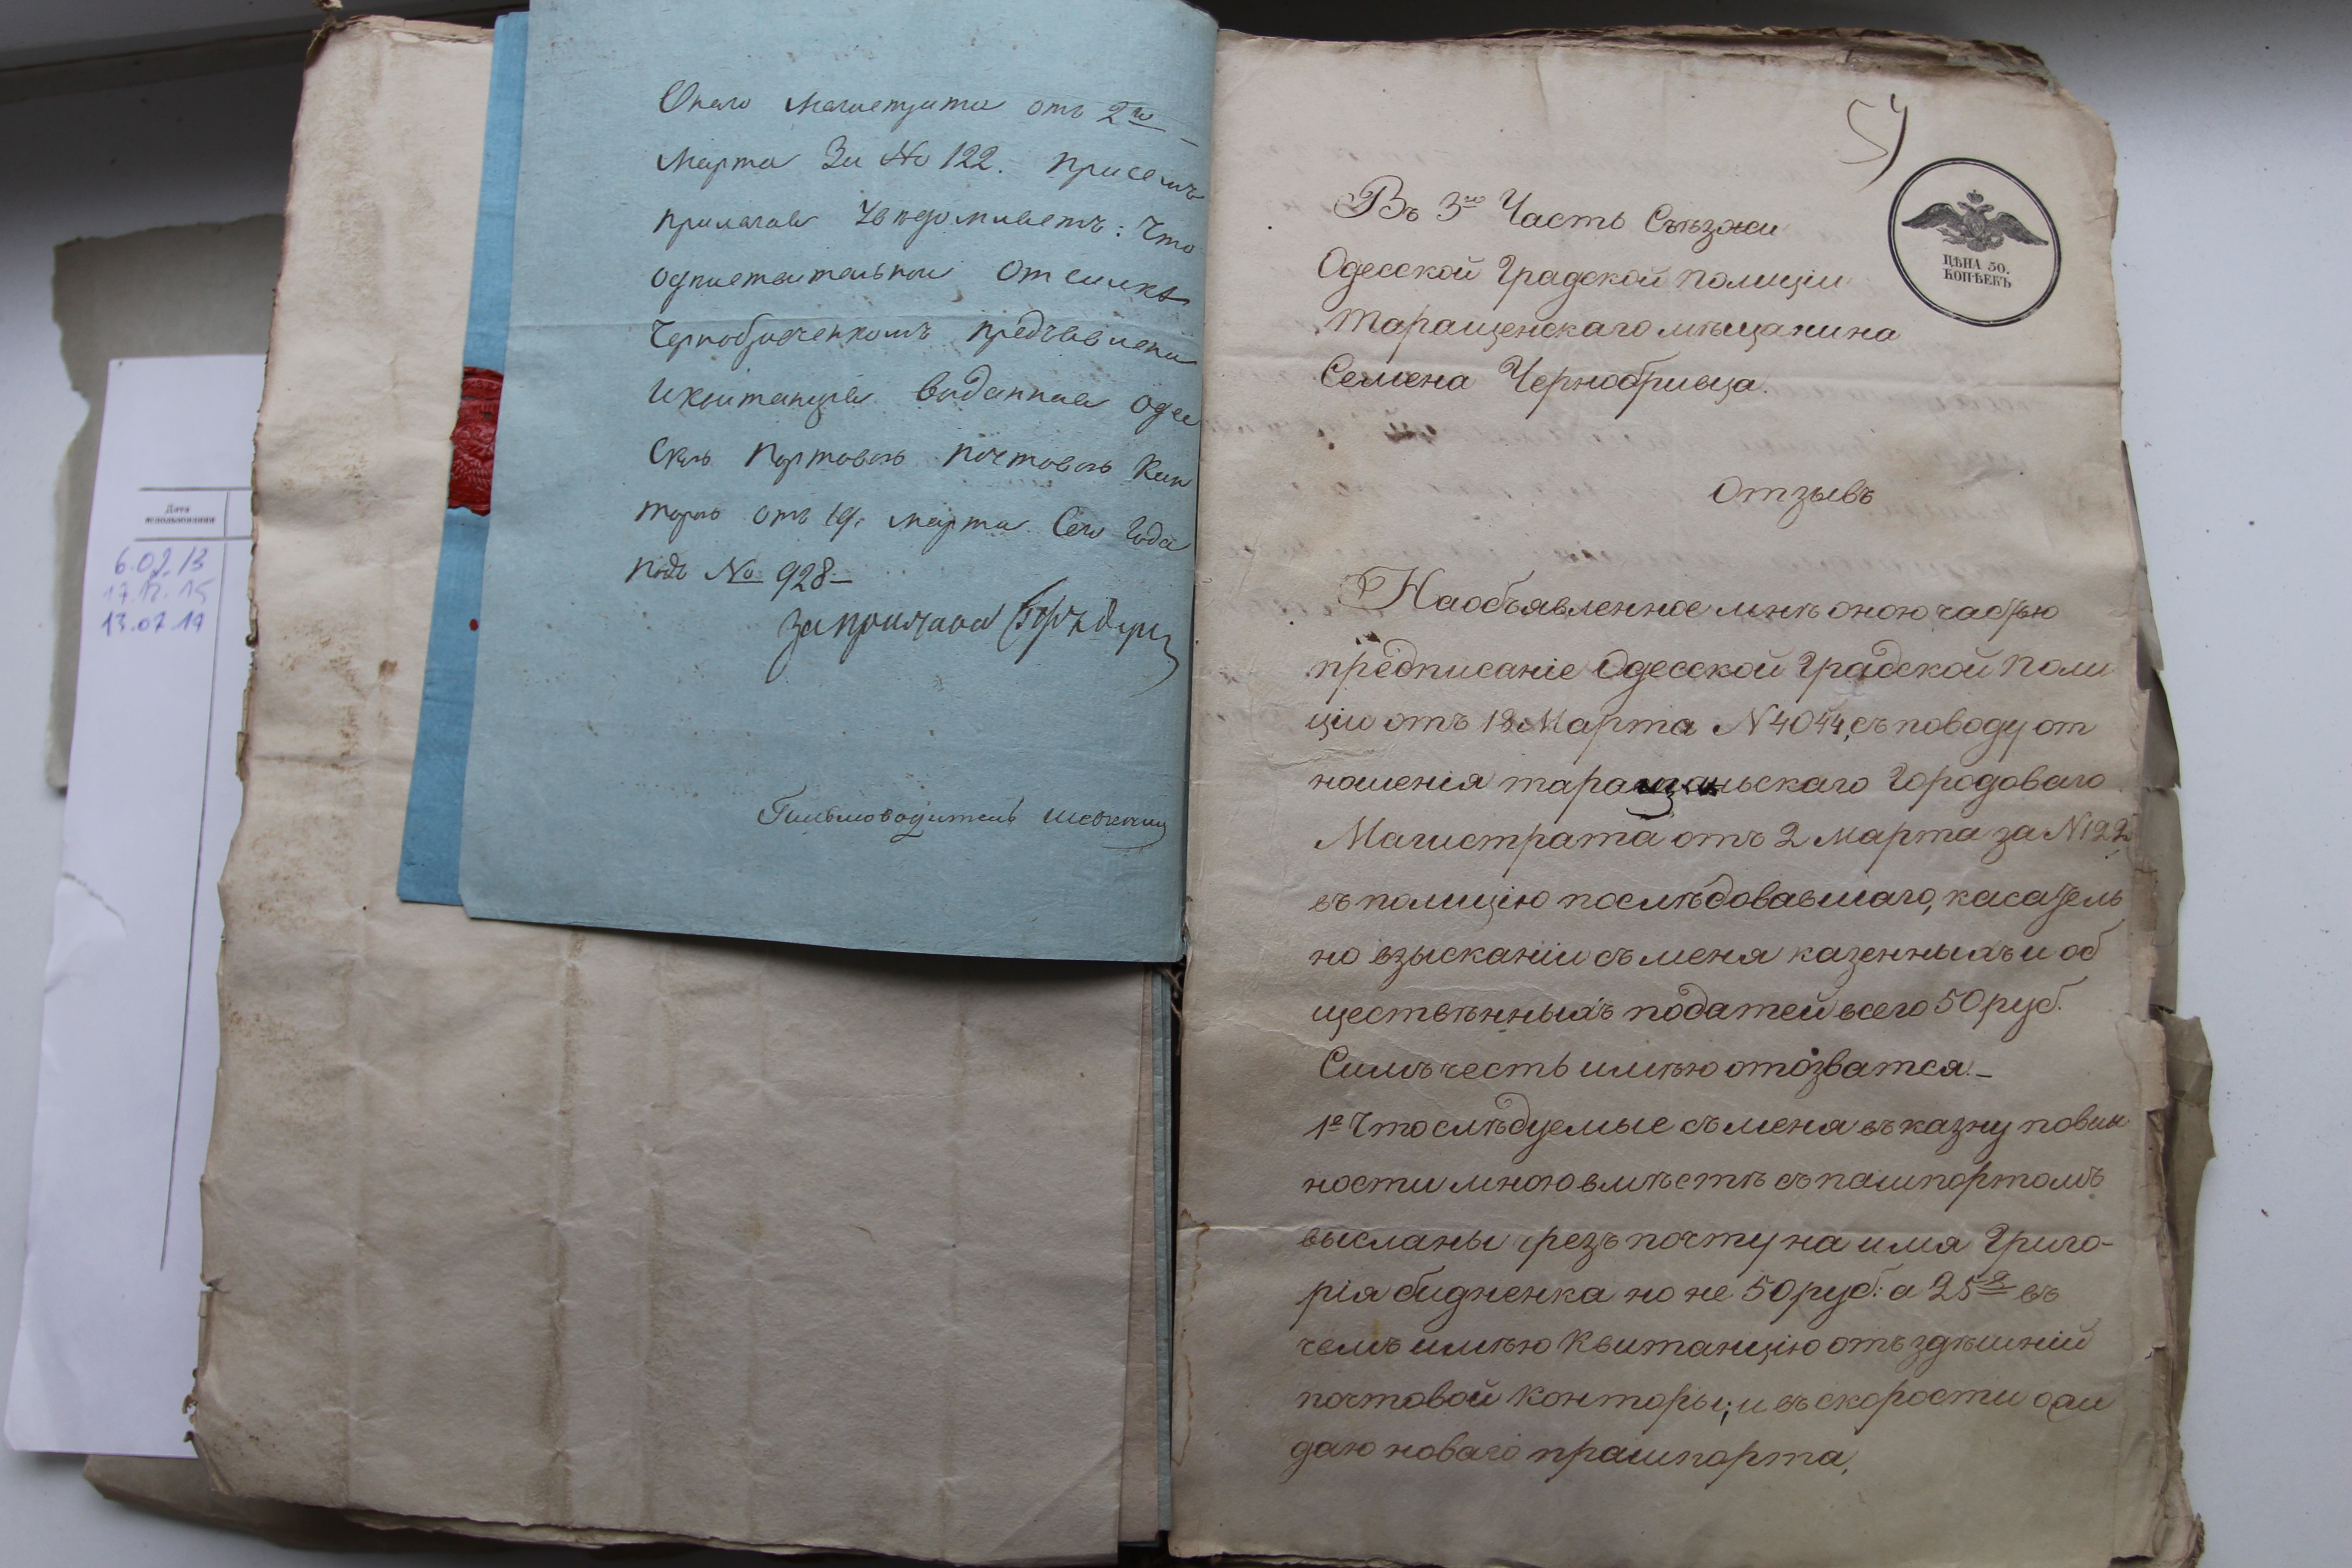 Онаго Магистрата отъ 2го
Марта За No 122. присемъ
прилагая Увѣдомляетъ: Что
одписательной Отсылкѣ
Чернобривченкомъ предъявлена
Иквитанция выданная Оде
Скою Портовою почтовою Кон
торою отъ 19. марта Сего Года
подъ No 928
За пристава
Письмоводитель
Дата
использования
6.02.13
17.12.15
13.07.17
54
ЦѢНА 50.
КОПѢЕКЪ
Въ 3ю Часть Съѣзжи
Одесской Градской полиціи
Таращенскаго мѣщанина
Семена Чернобривца.
Отзывъ
Наобъявленное мнѣ оною частью
предписаніе Одесской Градской поли
ціи отъ 18 Марта N 4044, съ поводу от
ношенія таращаньскаго Городоваго
Магистрата отъ 2 марта за N 122
въ полицію послѣдовавшаго, касатель
но взысканіи съ меня казенныхъ и об
ществѣнныхъ податей всего 50 руб.
Симъ честь имѣю отозватся.
1е Что слѣдуемые съ меня въ казну повин
ности мною вмѣстѣ съ пашпортомъ
высланы чрезъ почту на имя Григо-
рія бидненка но не 50 руб: а 25 въ
чемъ имѣю Квитанцію отъ здѣшній
почтовой Конторы; и въ скорости ожи
даю новаго прашпорта,